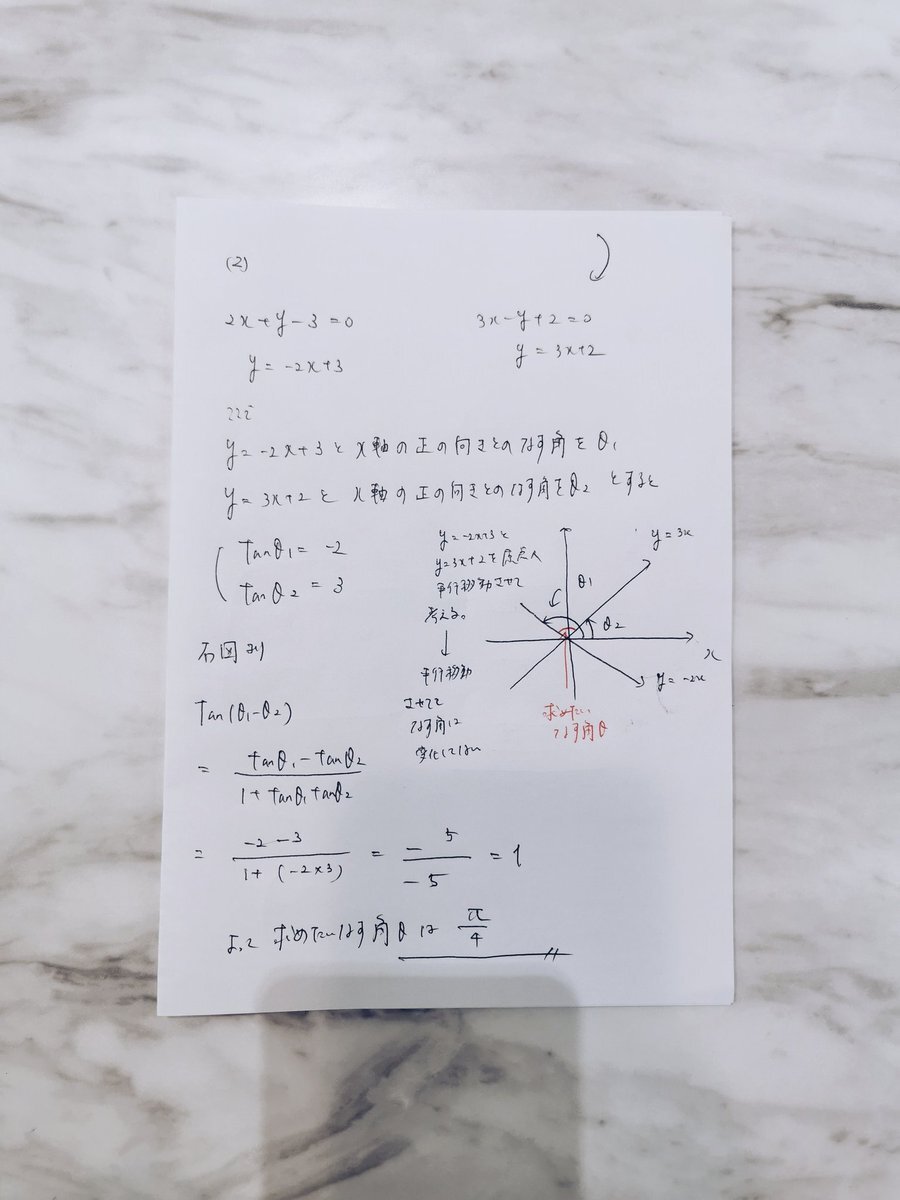 (2)
2x+y-3=0
3x-y+2=0
y=-2x+3
y=3x+2
ここで
y=-2x+3とx軸の正の向きとのなす角をθ1
y=3x+2とx軸の正の向きとのなす角をθ2とすると
tanθ1=-2
tanθ2=3
y=-2x+3と
y=3x+2を原点へ
平行移動させて
考える。
↓
平行移動
させても
なす角は
変化しない
y=3x
θ1
θ2
x
y=-2x
求めたい
なす角θ
右図より
tan(θ1-θ2)
= tanθ1-tanθ2 / 1+tanθ1tanθ2
= -2-3 / 1+(-2×3) = -5 / -5 = 1
よって求めたいなす角θは π/4